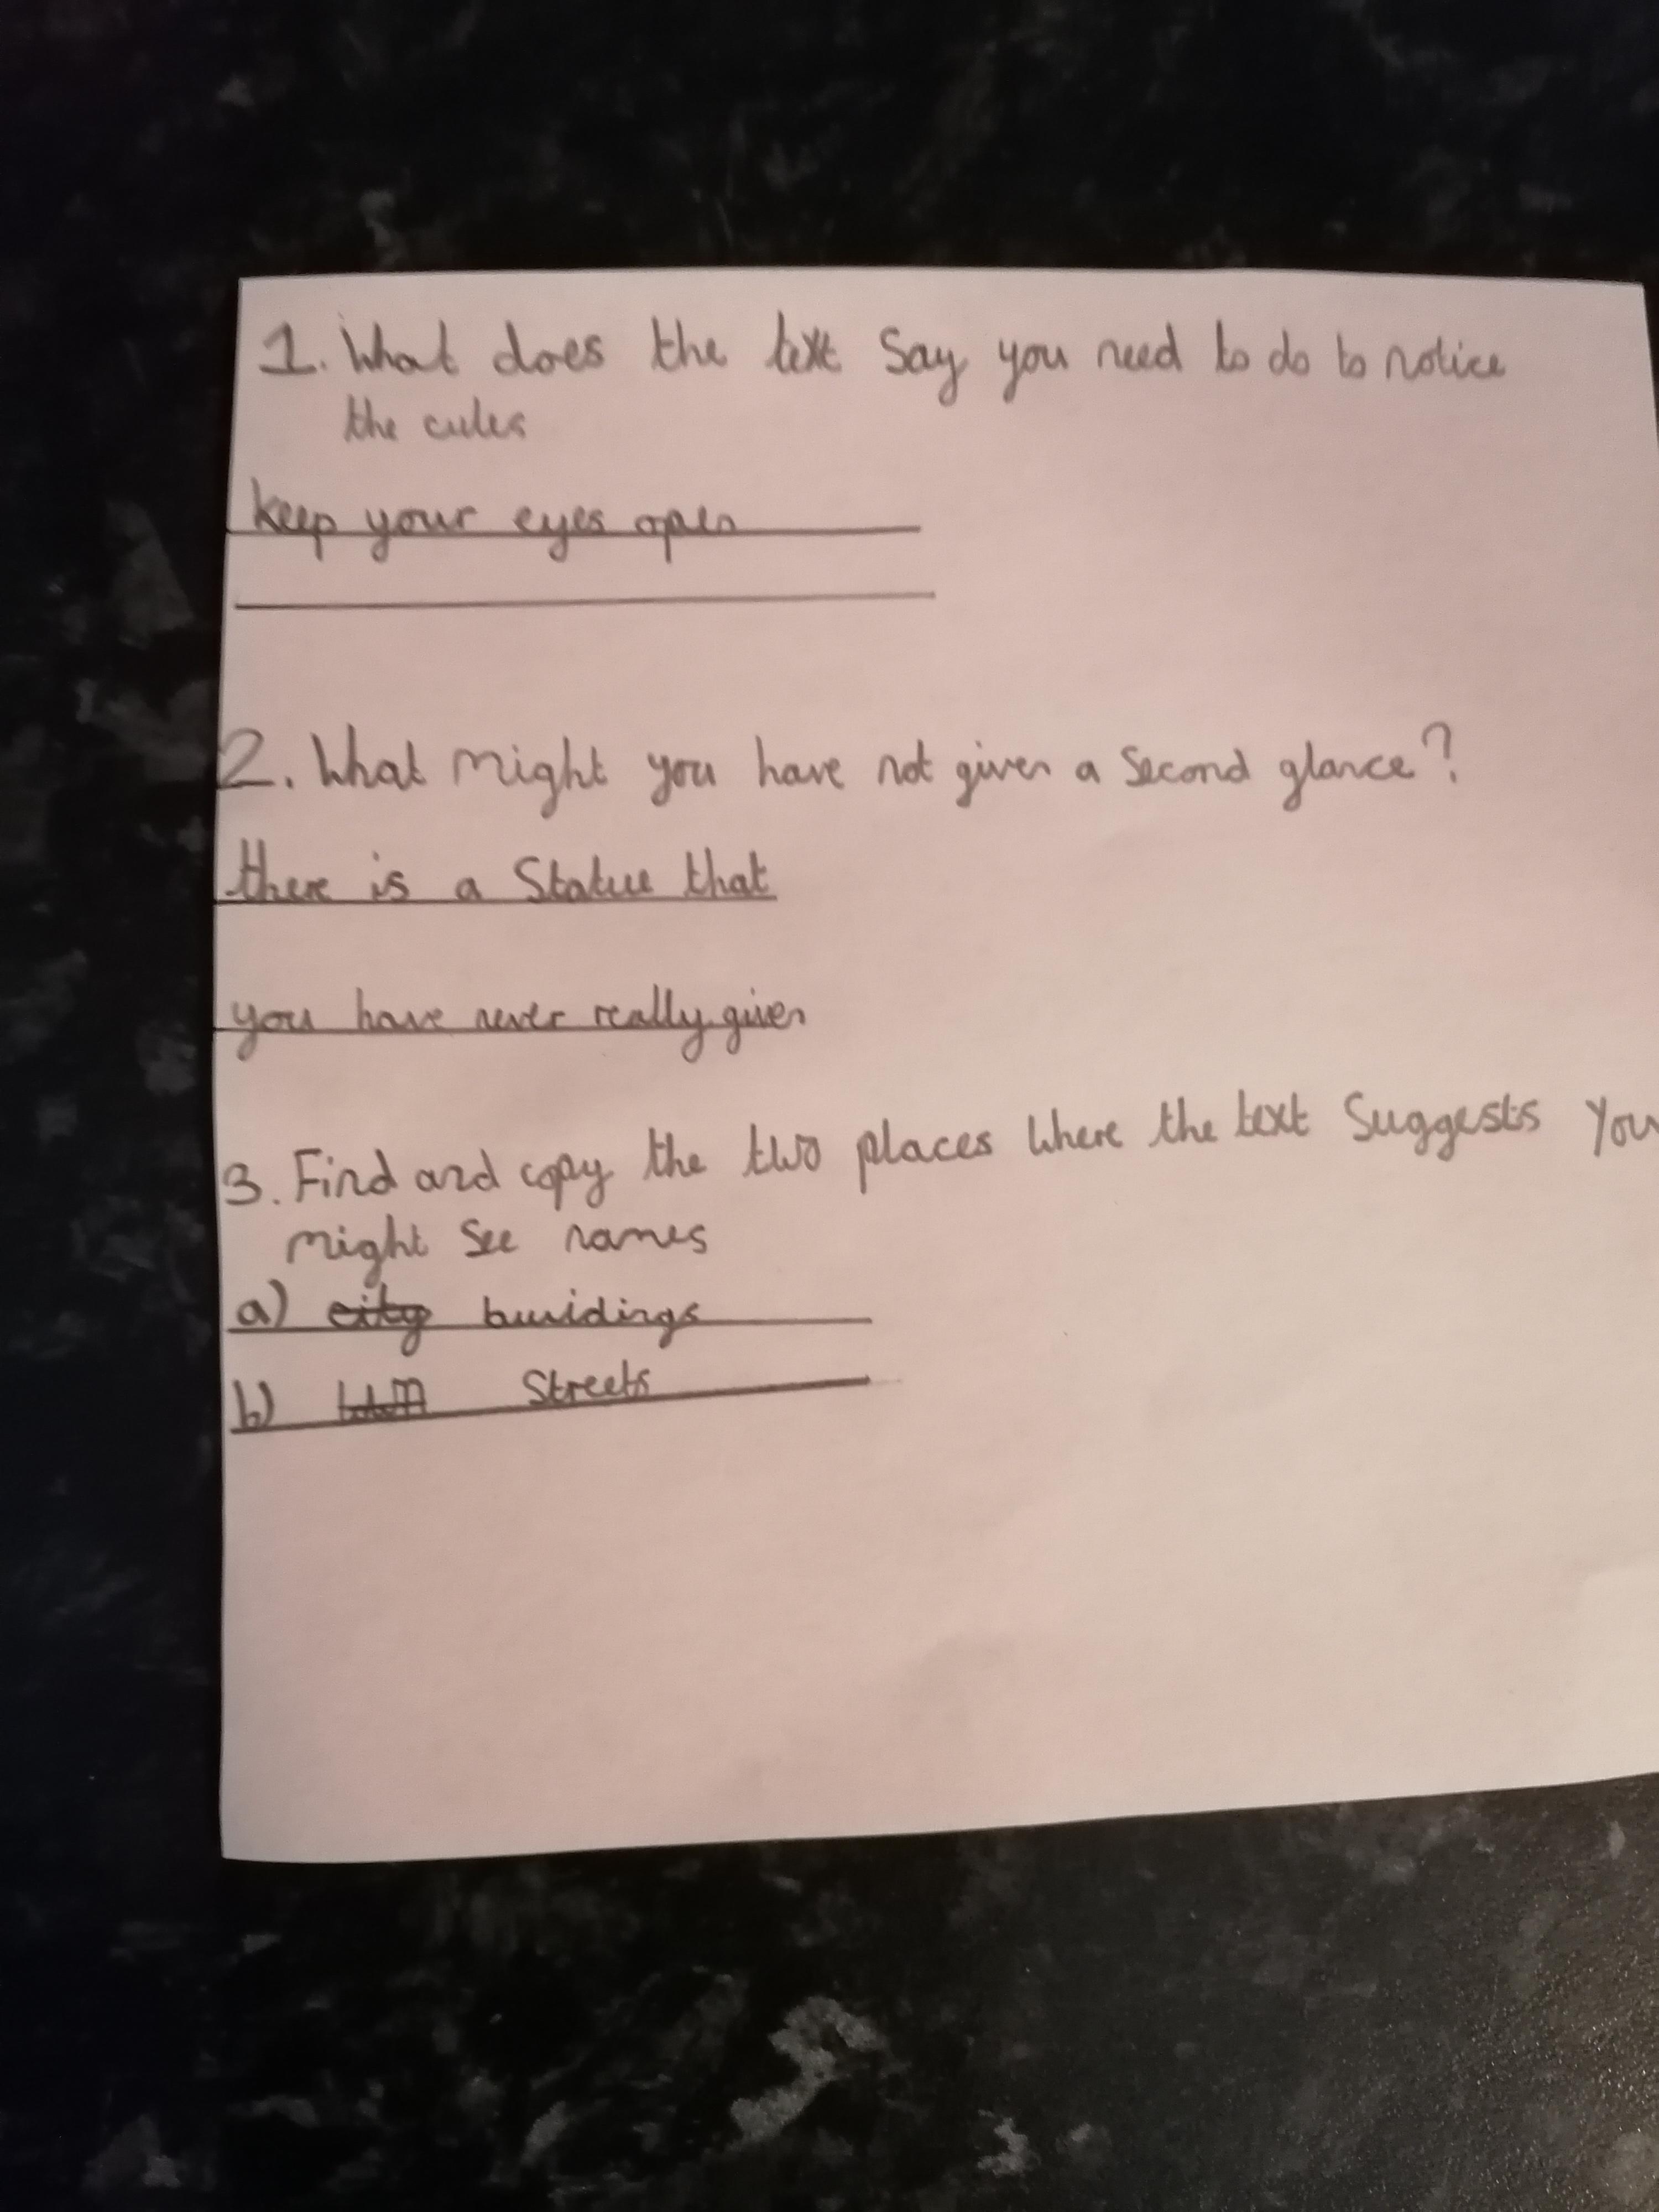 1. What does the text Say you need to do to notice
the cules
keep your eyes open
2. What might you have not given a Second glance?
there is a Statue that
you have never really given
3. Find and copy the two places Where the text Suggests You
might See names
a) city buuidings
b) Streets